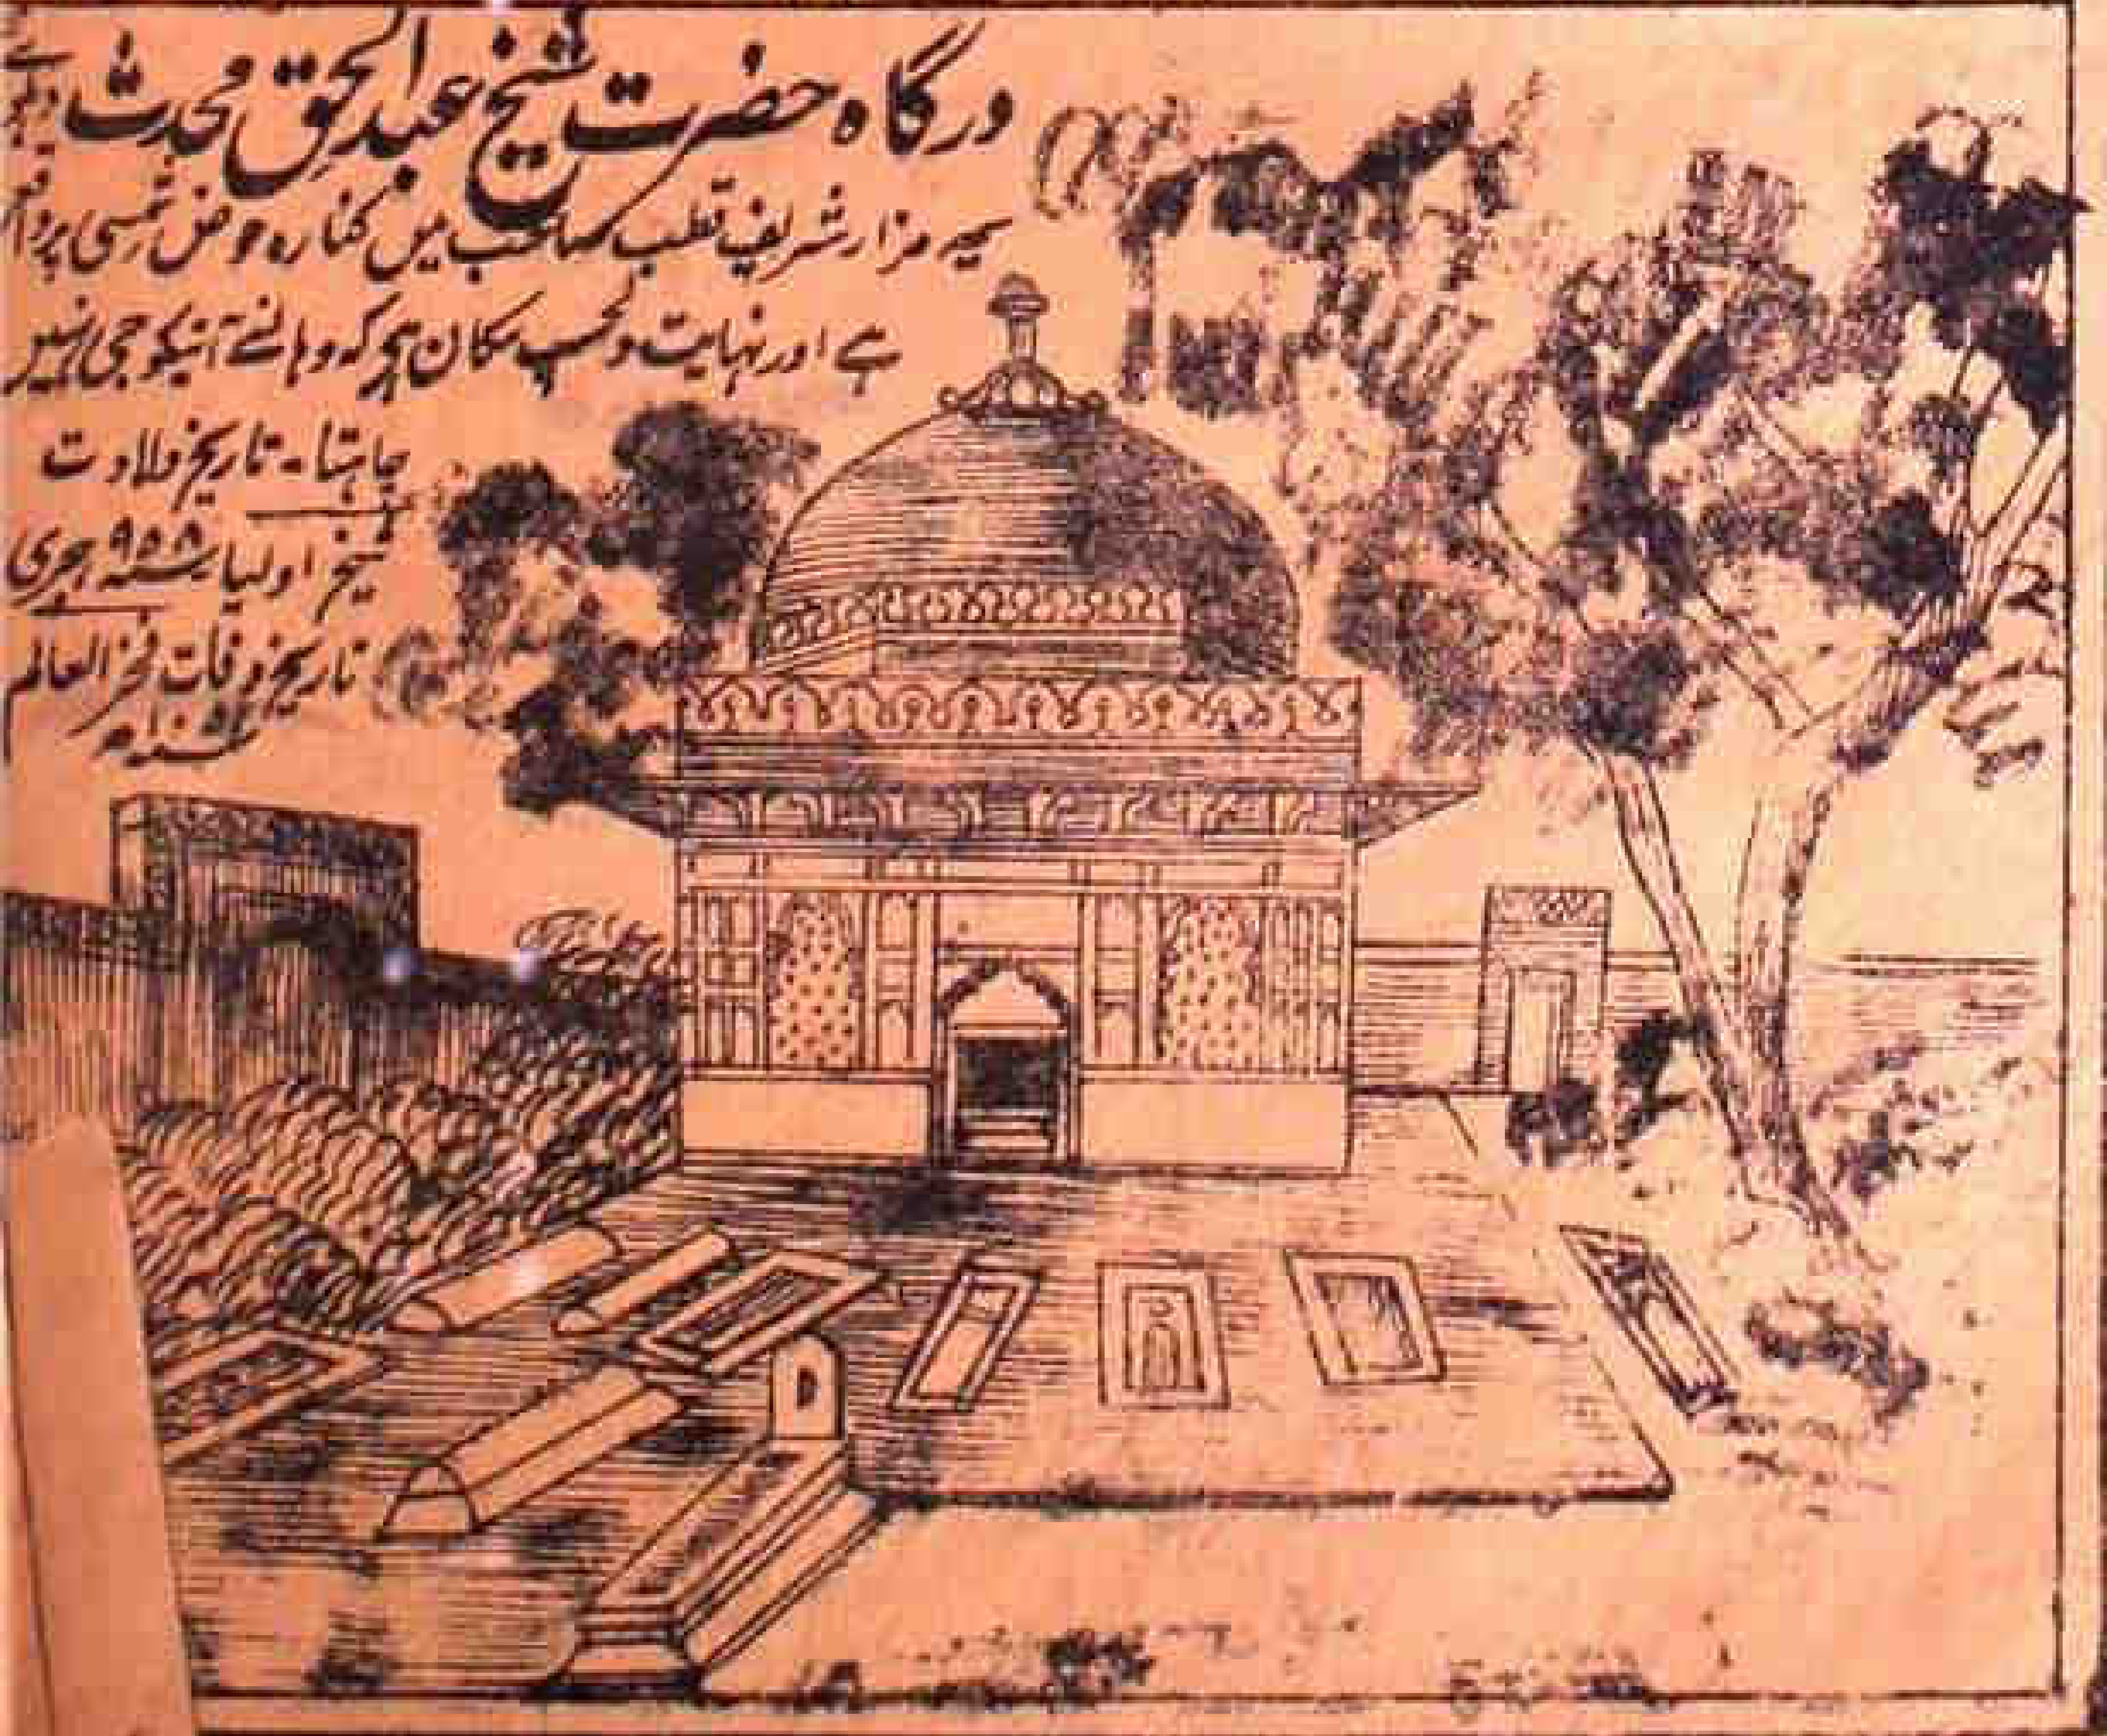 درگاہ حضرت شیخ عبدالحق محدث دہلوی
یہ مزار شریف قطب صاحب میں کنارہ حوض شمسی پر واقع
ہے اور نہایت دلچسپ مکان ہے کہ وہانسے آنیکو جی نہیں
چاہتا۔ تاریخ ولادت
شیخ اولیا ۹۵۸ ہجری
تاریخ وفات فخر العالم